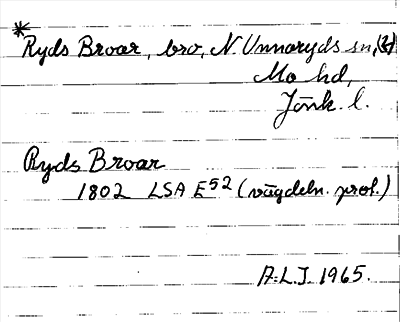 *
Ryds Broar, bro, N. Unnaryds sn, (3)
Mo hd,
Jönk. l.
Ryds Broar
1802 LSA E52 (vägdeln. prot.)
A.L.J. 1965.